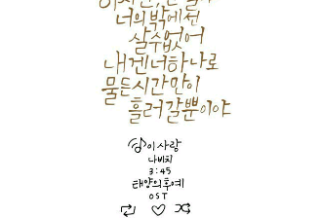 너의 밖에선
살 수 없어
내겐 너 하나로
물든 시간만이
흘러갈 뿐이야
이 사랑
다비치
3:45
태양의 후예
OST